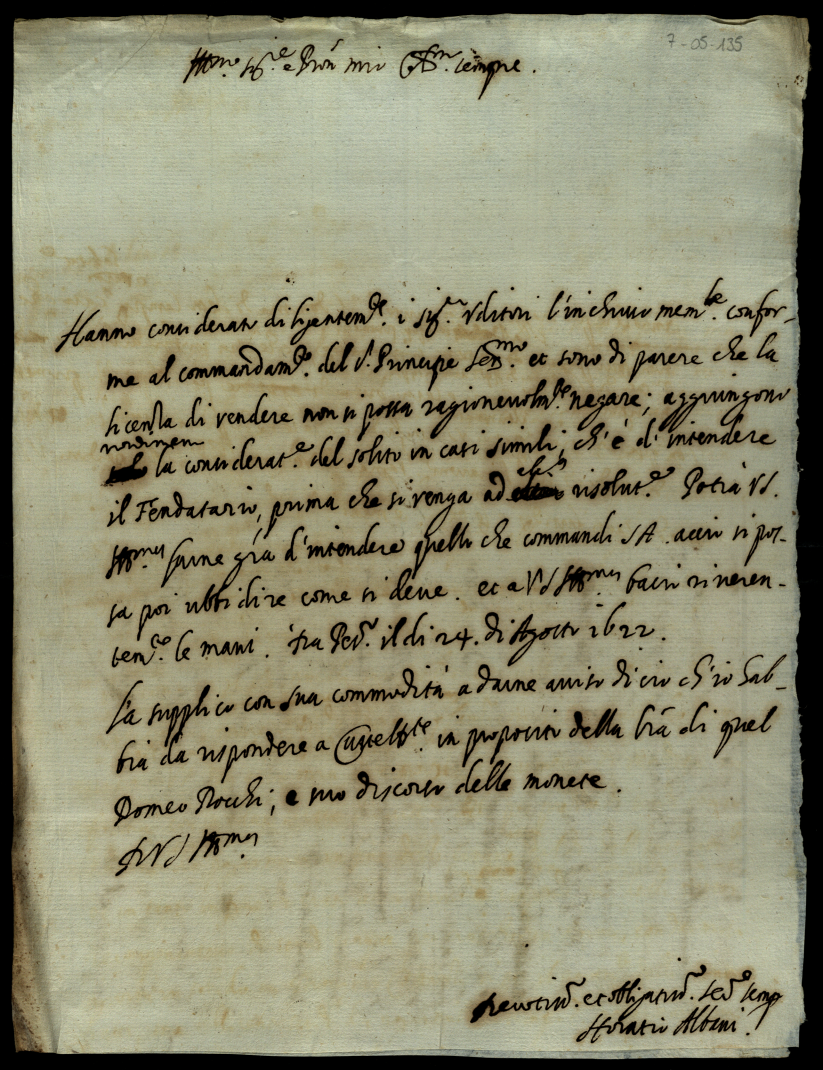 7-05-135
Ill.mo Sig.re e Pron mio Oss.mo sempre.
Hanno considerato diligentem.te i Sig.ri Vditori l'inchiuso mem.le confor-
me al commandam.to del S. Principe Ser.mo et sono di parere che la
licenza di vendere non si possa ragioneuolm.te negare; aggiungono
nondimeno
la considerat.e del solito in casi simili, ch'è d'intendere
il Feudatario, prima che si venga ad risolut.e Potrà VS.
Ill.ma farne gra d'intendere quello che commandi SA. acciò si pos-
sa poi ubbidire come si deue. et a VS Ill.ma bacio riueren-
tem.te le mani. il di 24. di Agosto 1622.
La supplico con sua commodità a darne auiso di ciò ch'io hab-
bia da rispondere a in proposito della lra di quel
Romeo Bocchi; e suo discorso delle monete.
Di VS Ill.ma
Deuotiss.o et obligatiss.o Ser.e semp
Horatio Albani.